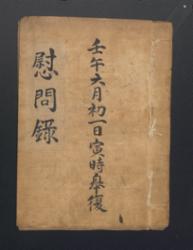 壬午六月初一日寅時皐復
慰問錄